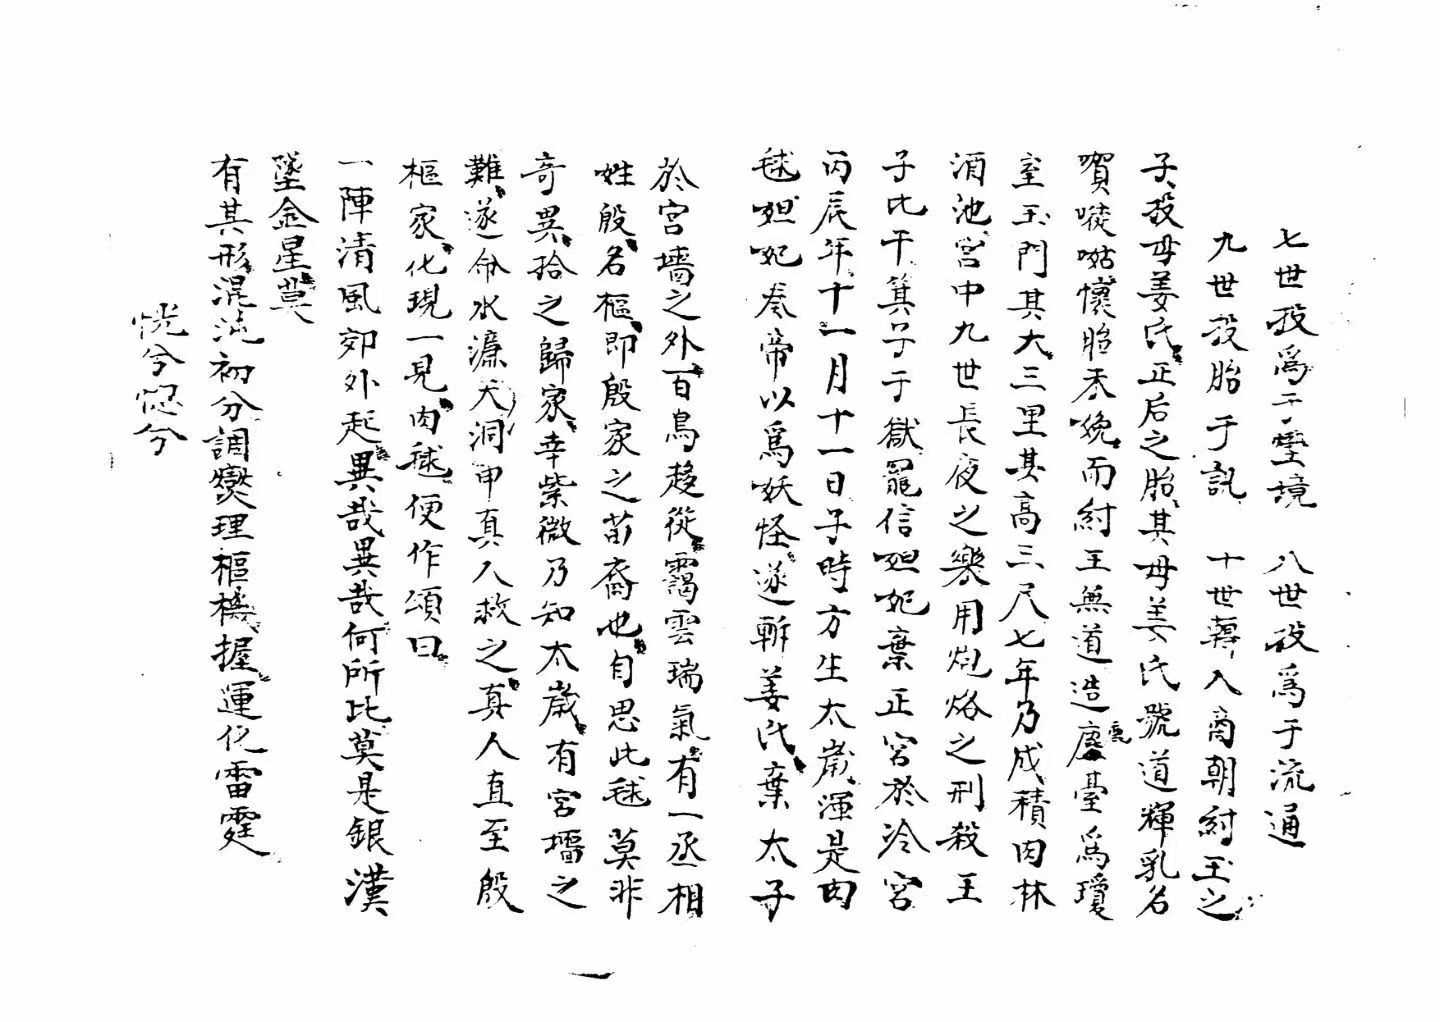 七世投為于𡌶境　八世投為于流通
九世投胎于訊　十世轉入商朝紂王之
子投母姜氏正后之胎其母姜氏號道輝乳名
懷胎未娩而紂王無道造鹿臺為瓊
室玉門其大三里其高三尺七年乃成積肉林
酒池宮中九世長夜之樂用炮烙之刑殺王
子比干箕子于獄寵信妲妃棄正宮於冷宮
丙辰年十一月十一日子時方生太歲渾是肉
毬妲妃奏帝以為妖怪遂斬姜氏棄太子
於宮墻之外百鳥移從靄雲瑞氣有一丞相
姓殷名樞即殷家之苗裔也自思此毬莫非
奇異拾之歸家幸紫微乃知太歲有宮墻之
難遂命水濂大洞申真人救之真人直至殷
樞家化現一見肉毬便作頌曰
一陣清風郊外起異哉異哉何所比莫是銀漢
墜金星莫
有其形混沌初分調爕理樞機握運化雷霆
恍兮惚兮